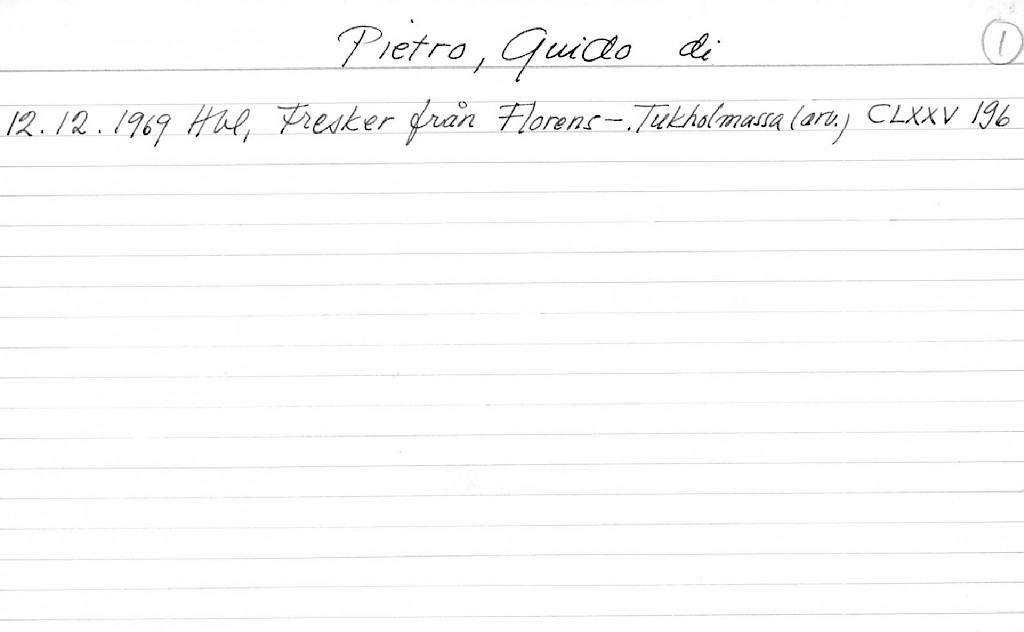 Pietro, Guido di 1
12.12.1969 Hbl, Fresker från Florens -. Tukholmassa (arv.) CLXXV 196